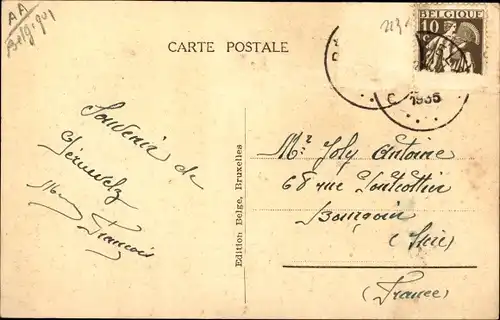 AA
Belgique
CARTE POSTALE
BELGIQUE
10
1935
Souvenir de
Péruwelz
François
Edition Belge, Bruxelles
Mr Joly Antoine
68 rue Pontcottin
Bourgoin
(Isère)
(France)